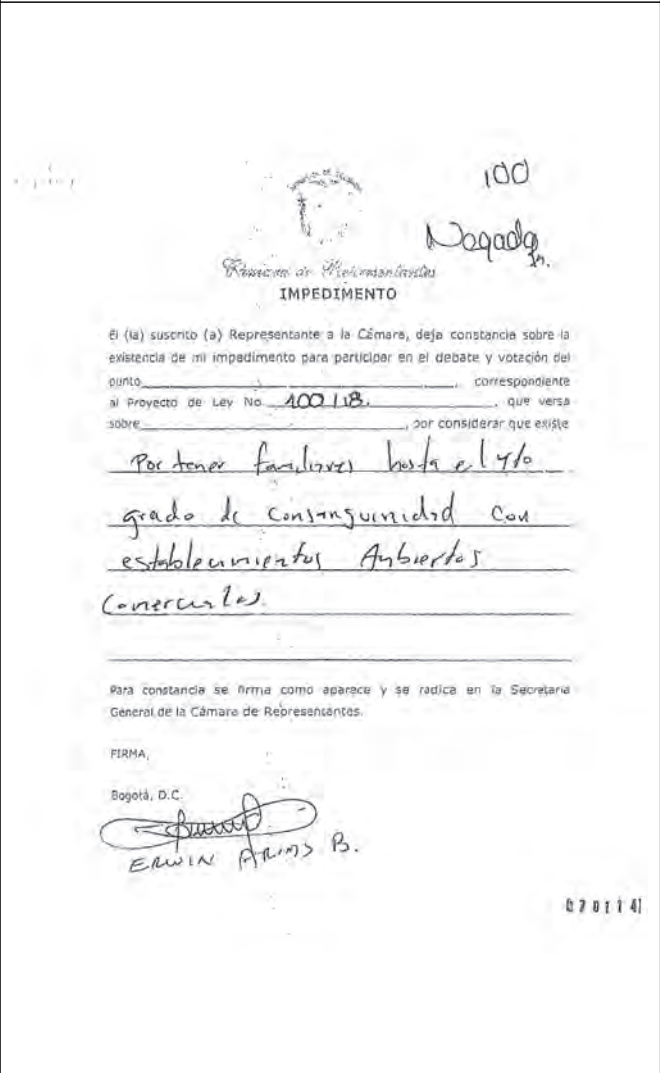 100
Negada
Cámara de Representantes
IMPEDIMENTO
El (la) suscrito (a) Representante a la Cámara, deja constancia sobre la
existencia de mi impedimento para participar en el debate y votación del
punto , correspondiente
al Proyecto de Ley No. 100/18. , que versa
sobre , por considerar que existe
Por tener familiares hasta el 4to
grado de consanguinidad con
establecimientos Anbiertos
Comerciales.
Para constancia se firma como aparece y se radica en la Secretaria
General de la Cámara de Representantes.
FIRMA,
Bogotá, D.C.
ERWIN ARIAS B.